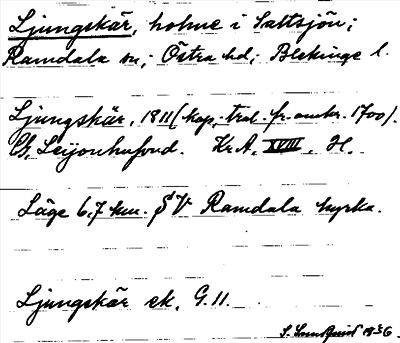 Ljungskär, holme i Saltsjön;
Ramdala sn; Östra hd; Blekinge l.
Ljungskär, 1811 (kop. trol. fr. omkr. 1700).
Ch. Leijonhufvud. Kr.A. XVIII. H.
Läge 6,7 km. SV Ramdala kyrka.
Ljungskär ek. G.11.
S. 1936